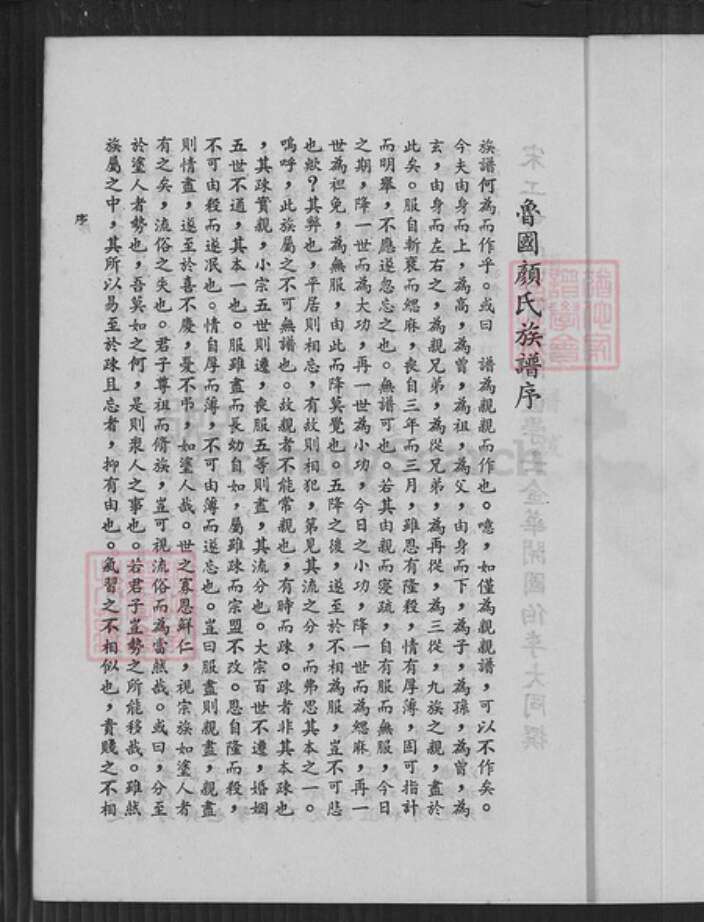 魯國顏氏族譜序
族譜何為而作乎。或曰　譜為親親而作也。噫，如僅為親親譜，可以不作矣。
今夫由身而上，為高，為曾，為祖，為父，由身而下，為子，為孫，為曾，為
玄，由身而左右之，為親兄弟，為從兄弟，為再從，為三從，九族之親，盡於
此矣。服自斬衰而緦麻，喪自三年而三月，雖恩有隆殺，情有厚薄，固可指計
而明舉，不應遂忽忘之也。無譜可也。若其由親而寖疏，自有服而無服，今日
之期，降一世而為大功，再一世為小功，今日之小功，降一世而為緦麻，再一
世為袒免，為無服，由此而降莫覺也。五降之後，遂至於不相為服，豈不可悲
也歟？其弊也，平居則相忘，有故則相犯，第見其流之分，而弗思其本之一。
嗚呼，此族屬之不可無譜也。故親者不能常親也，有時而疎。疎者非其本疎也
，其疎實親，小宗五世則遷，喪服五等則盡，其流分也。大宗百世不遷，婚姻
五世不通，其本一也。服雖盡而長幼自如，屬雖疎而宗盟不改。恩自隆而殺，
不可由殺而遂泯也。情自厚而薄，不可由薄而遂忘也。豈曰服盡則親盡，親盡
則情盡，遂至於喜不慶，憂不弔，如塗人哉。世之寡恩鮮仁，視宗族如塗人者
有之矣，流俗之失也。君子尊祖而脩族，豈可視流俗而為當然哉。或曰，分至
於塗人者勢也，吾莫如之何，是則衆人之事也。若君子豈勢之所能移哉。雖然
族屬之中，其所以易至於疎且忘者，抑有由也。氣習之不相似也，貴賤之不相
序